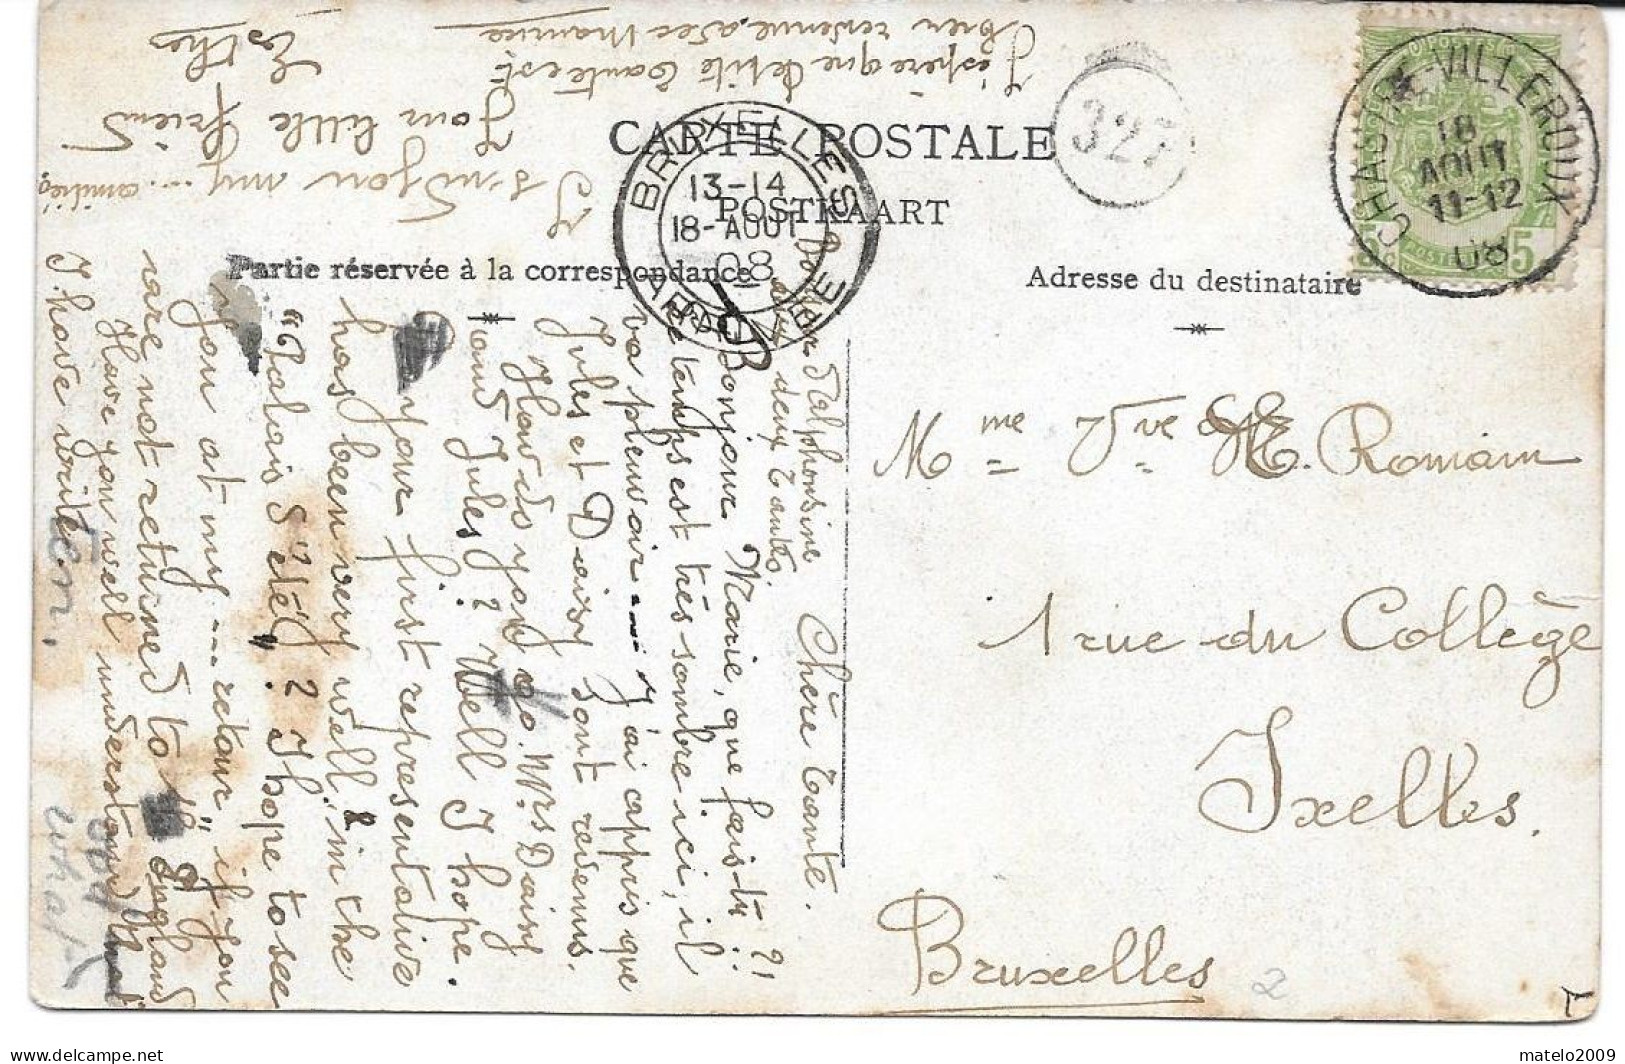 CARTE POSTALE
POSTKAART
Partie réservée à la correspondance
Adresse du destinataire
BRUXELLES
13-14
18-AOUT
08
327
CHAUSSÉE-VILLEROUX
18
AOUT
11-12
08
5
5
Mme Vve H. Romain
1 rue du Collège
Ixelles.
Bruxelles
2
Chère tante.
Bonjour d'alphonsine
aux deux tantes.
Bonjour Marie, que fais-tu ?!
le temps est très sombre ici, il
va pleuvoir --- J'ai appris que
Jules et Daisy sont revenus.
How do you do. Mrs Daisy
and Jules? Well I hope.
your first representative
has been very well, in the
"Palais d'été"? I hope to see
you at my ... retour", if you
are not returned to England
Have you well understand what
I have written
I send you my ... amitiés,
Your little friend
Esther
J'espère que petite tante est
bien revenue avec Maurice
matelo2009